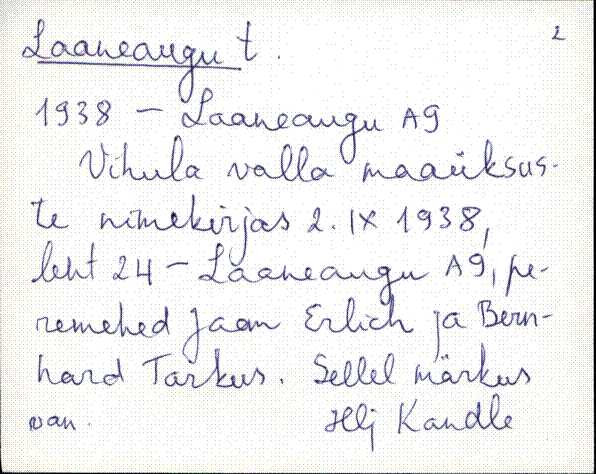 2
Laaneaugu t.
1938 – Laaneaugu A9
Vihula valla maaüksus-
te nimekirjas 2. IX 1938,
leht 24 – Laaneaugu A9, pe-
remehed Jaan Erlich ja Bern-
hard Tarkus. Sellel märkus
van. Hlj Kandle